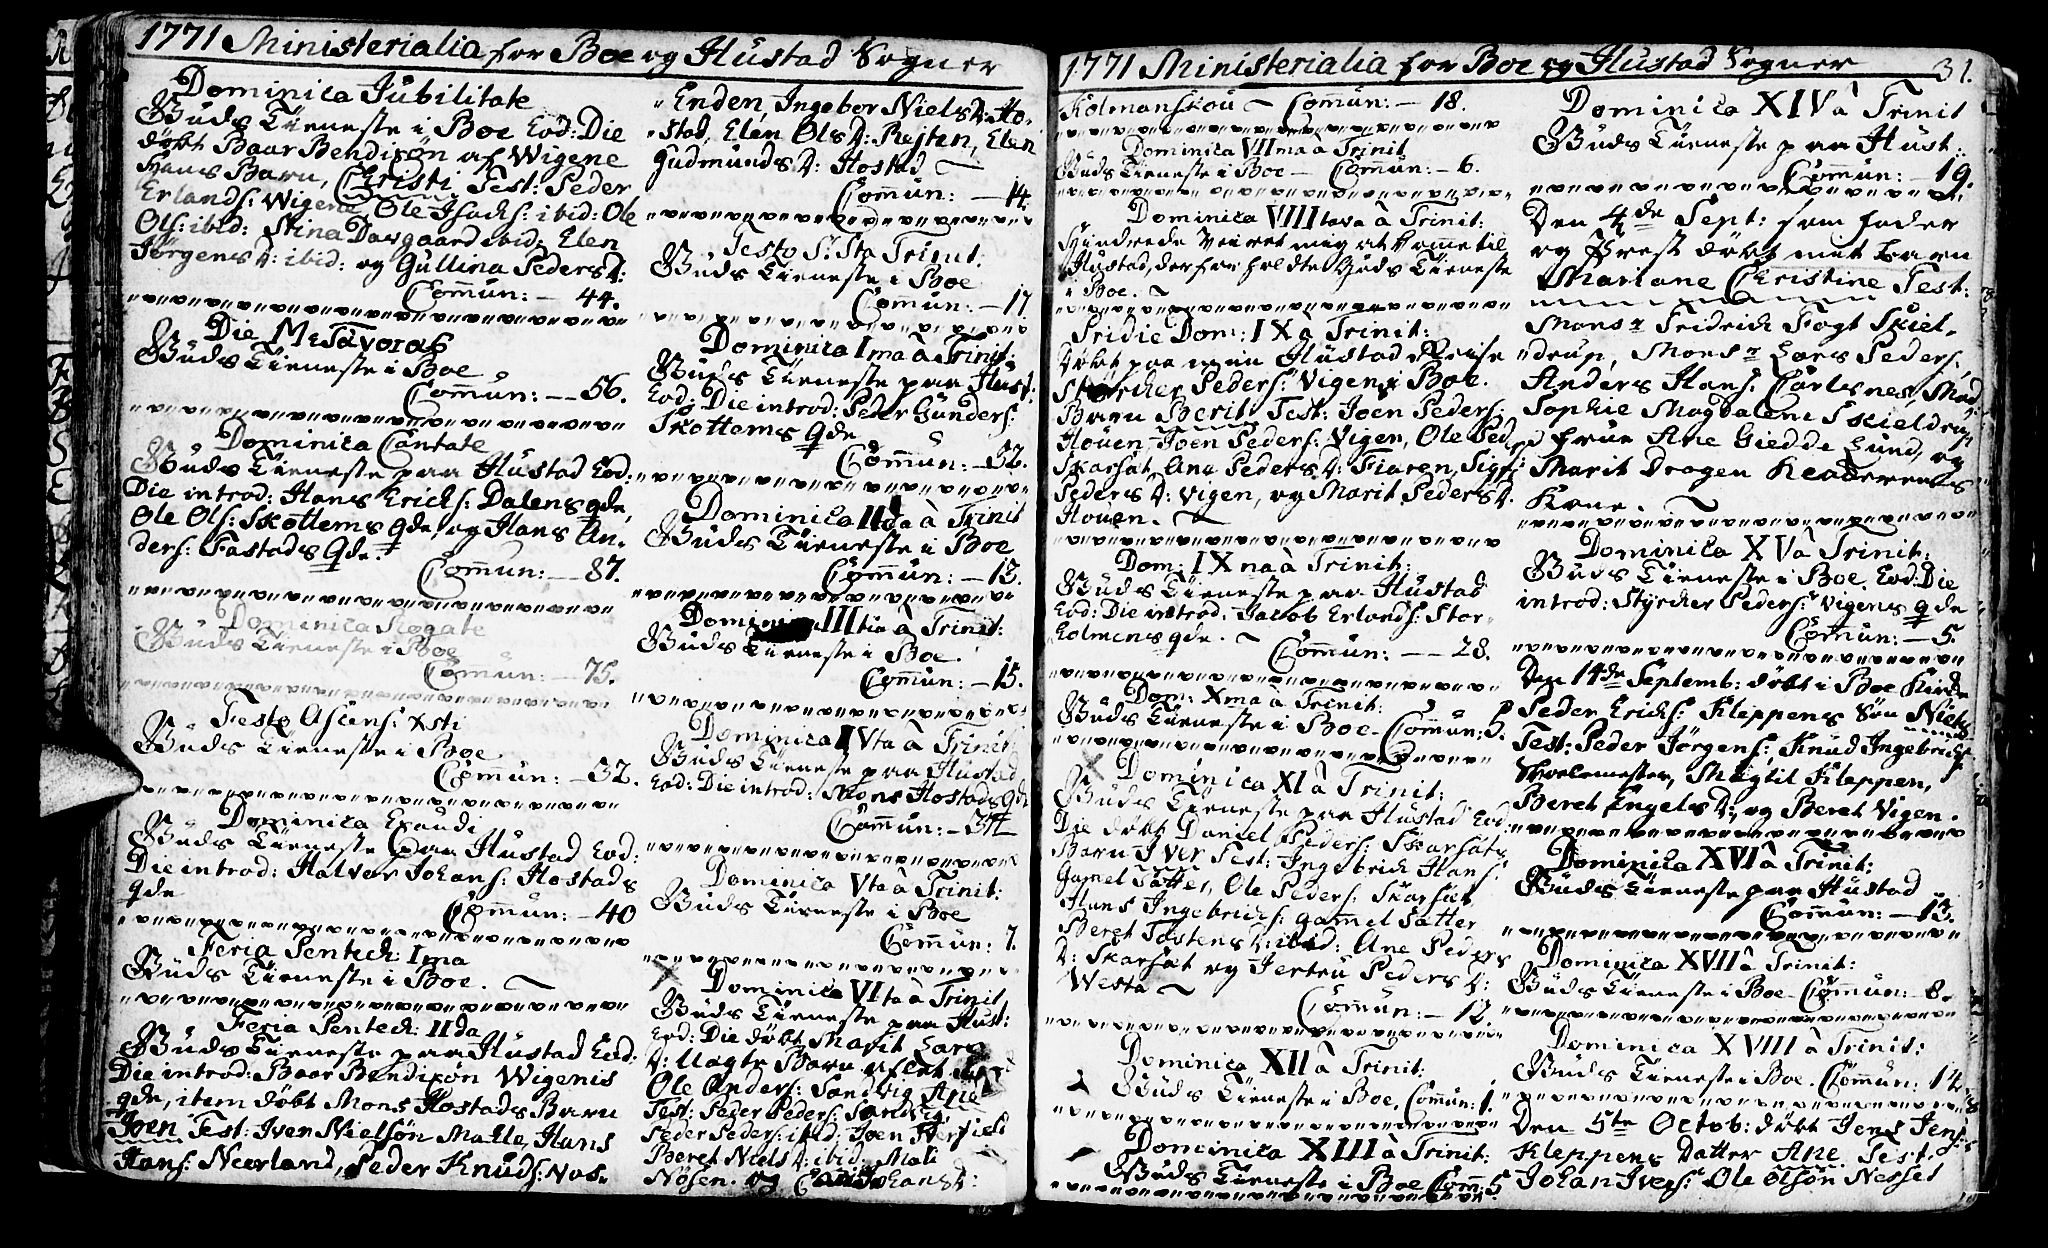 1771 Ministerialia for Boe og Hustad Sogner
Dominica Jubilitate
Guds Tieneste i Boe Eod: Die
døbt Baar Bendixøn af Wigene
Hans Barn, Christi Test: Peder
Erlands: Wigene, Ole Isachs: ibid: Ole
Ols: ibid: Stina Dasgaard ibid: Elen
Jørgens D: ibid: og Gullina Peders D:
Comun: — 44.
Die
Guds Tieneste i Boe
Comun: — 56.
Dominica Cantate
Guds Tieneste paa Hustad Eod:
Die introd: Hans Erichs: Dalens qde,
Ole Ols: Skottems qde, og Hans An-
ders: Fastads qde.
Comun: — 87.
Dominica Rogate
Guds Tieneste i Boe
Comun: — 75.
Festo Ascens: Xsti
Guds Tieneste i Boe
Comun: — 32.
Dominica Exaudi
Guds Tieneste paa Hustad Eod:
Die introd: Halvor Johans: Hostads
qde
Comun: — 40
Feria Pentech: Ima
Guds Tieneste i Boe.
Feria Pentech: IIda
Guds Tieneste paa Hustad Eod:
Die introd: Baar Bendixøn Wigenis
qde, item døbt Mons Hostads Barn
Joen Test: Iver Nielsøn Malle, Hans
Hans: Neerland, Peder Knuds: Nos-
Enden, Ingebor Niels D: Ho-
stad, Elen Ols D: Rejten, Elen
Gudmunds D: Hostad
Comun: — 14.
Festo S: Sta Trinit:
Guds Tieneste i Boe
Comun: — 17
Dominica Ima à Trinit:
Guds Tieneste paa Hust:
Eod: Die introd: Peder Gunders:
Skottems qde
Comun: — 32.
Dominica IIda à Trinit
Guds Tieneste i Boe
Comun: — 13.
Dominica IIItia à Trinit:
Guds Tieneste i Boe.
Comun: — 15.
Dominica IVta à Trinit:
Guds Tieneste paa Hustad
Eod: Die introd: Mons Hostads qde
Comun: — 34
Dominica Vta à Trinit:
Guds Tieneste i Boe
Comun: 7.
Dominica VIta à Trinit
Guds Tieneste paa Hust:
Eod: Die døbt Marit Lars
D: Uægte Barn
Ole Anders: Sandvig Ane
Test: Peder Peders: Sandvig,
Peder Peders: ibid: Joen
Beret Niels D: ibid: Mali
Nøsen. og Johans D:
1771 Ministerialia for Boe og Hustad Sogner 31.
Kolmanskou — Comun: — 18.
Dominica VIIma à Trinit
Guds Tieneste i Boe — Comun: — 6.
Dominica VIIItava à Trinit:
Hindrede Veiret mig at kome til
Hustad, derfor holdte Guds Tieneste
i Boe.
Pridie Dom: IX a Trinit:
Døbt paa min Hustad Reise
Styrcker Peders: Vigen i Boe.
Barn Berit, Test: Joen Peders:
Houen, Joen Peders: Vigen, Ole Ped
Skarsæt, Ane Peders D: Fiaren,
Peders D: Vigen, og Marit Peders D:
Houen.
Dom: IXna à Trinit:
Guds Tieneste paa Hustad
Eod: Die introd: Jacob Erlands: Stor-
holmens qde.
Comun: — 28.
Dom: Xma à Trinit:
Guds Tieneste i Boe. Comun: 5.
Dominica XI à Trinit:
Guds Tieneste paa Hustad Eod:
Die døbt Daniel Peders: Skarsæts
Barn Iver Test: Ingebrich Hans:
Gamel Sætter, Ole Peders: Skarsæt
Hans Ingebrichs: gammel Sætter
Beret Tostens D: ibid: Ane Peders
D: Skarsæt og Jertru Peders D:
Westa
Comun: — 12
Dominica XII à Trinit:
Guds Tieneste i Boe. Comun: 1.
Dominica XIII à Trinit:
Guds Tieneste i Boe Com: 5
Dominica XIV à Trinit
Guds Tieneste paa Hust:
Comun: — 19.
Den 4de Sept: som Fader
og Præst døbt mit Barn
Mariane Christine Test:
Monsr Fridrich Fogt Skiel-
drup, Monsr Lars Peders,
Anders Hans: Carlsnes, Mad:
Sophie Magdalene Skieldrup
Frue Ane Giedde Lund, og
Marit Dragen
Kone.
Dominica XV à Trinit:
Guds Tieneste i Boe. Eod: Die
introd: Styrcker Peders: Vigens qde
Comun: — 5.
Den 14de Septemb: døbt i Boe Kirke
Peder Erichs: Kleppens Søn Niels
Test: Peder Jørgens: Knud Ingebrichs:
Skolemester, Magtil Kleppen,
Beret Engels D: og Beret Vigen.
Dominica XVI à Trinit:
Guds Tieneste paa Hustad
Comun: — 13.
Dominica XVII à Trinit:
Guds Tieneste i Boe — Comun: — 8.
Dominica XVIII à Trinit:
Guds Tieneste i Boe. Comun: 12.
Den 5te Octob: døbt Jens Jens:
Kleppens Datter Ane Test:
Johan Ivers: Ole Olsøn Nesset